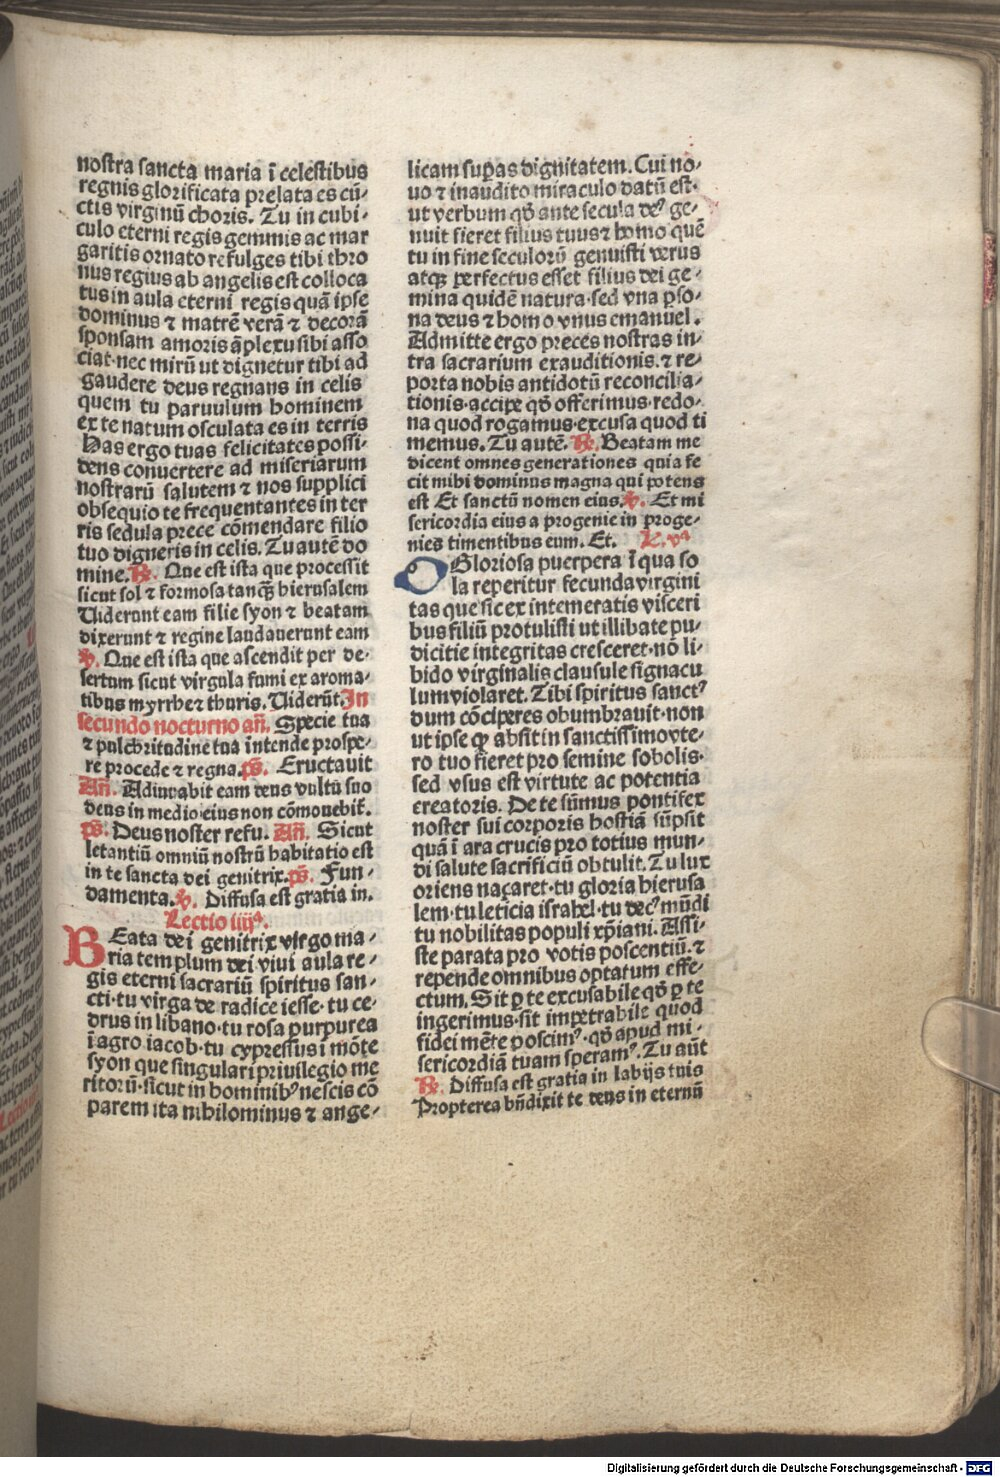 nostra sancta maria ī celestibus
regnis glorificata prelata es cū-
ctis virginū choris. Tu in cubi-
culo eterni regis gemmis ac mar
garitis ornato refulges tibi thro
nus regius ab angelis est colloca
tus in aula eterni regis quā ipse
dominus ⁊ matrē verā ⁊ decorā
sponsam amoris āplexu sibi asso
ciat·nec mirū ut dignetur tibi ad
gaudere deus regnans in celis
quem tu paruulum hominem
ex te natum osculata es in terris
Has ergo tuas felicitates possi-
dens convertere ad miseriarum
nostrarū salutem ⁊ nos supplici
obsequio te frequentantes in ter
ris sedula prece cōmendare filio
tuo digneris in celis. Tu autē do
mine. ℞. Que est ista que processit
sicut sol ⁊ formosa tanq̄ hierusalem
Uiderunt eam filie syon ⁊ beatam
dixerunt ⁊ regine laudauerunt eam
℣. Que est ista que ascendit per de-
sertum sicut virgula fumi ex aroma-
tibus myrrhe ⁊ thuris. Uiderūt. In
secundo nocturno añ. Specie tua
⁊ pulchritudine tua intende prospe-
re procede ⁊ regna. ps̄. Eructauit
Añ. Adiuvabit eam deus vultu suo
deus in medio eius non cōmovebit̄.
ps̄. Deus noster refu. Añ. Sicut
letantiū omniū nostrū habitatio est
in te sancta dei genitrix. ps̄. Fun-
damenta. ℣. Diffusa est gratia in.
Lectio iiijᵃ.
BEata dei genitrix virgo ma-
ria templum dei vivi aula re-
gis eterni sacrariū spiritus san-
cti·tu virga de radice iesse·tu ce-
drus in libano·tu rosa purpurea
ī agro iacob·tu cypressus ī mōte
syon que singulari privilegio me
ritorū·sicut in hominibꝰ nescis cō
parem ita nihilominus ⁊ ange-
licam suꝑas dignitatem. Cui no-
vo ⁊ inaudito miraculo datū est·
ut verbum qđ ante secula deꝰ ge-
nuit fieret filius tuus ⁊ homo quē
tu in fine seculorū genuisti verus
atqꝫ perfectus esset filius dei ge-
mina quidē natura·sed vna ꝑso-
na deus ⁊ homo vnus emanuel.
Admitte ergo preces nostras in-
tra sacrarium exauditionis·⁊ re-
porta nobis antidotū reconcilia-
tionis·accipe qđ offerimus·redo-
na quod rogamus·excusa quod ti
memus. Tu autē. ℞. Beatam me
dicent omnes generationes quia fe
cit mihi dominus magna qui potens
est Et sanctū nomen eius. ℣. Et mi
sericordia eius a progenie in proge-
nies timentibus eum. Et. L. vᵃ
O Gloriosa puerpera ī qua so
la reperitur fecunda virgini
tas que sic ex intemeratis visceri
bus filiū protulisti ut illibate pu-
dicitie integritas cresceret·nō li-
bido virginalis clausule signacu
lum violaret. Tibi spiritus sanctꝰ
dum cōciperes obumbrauit·non
ut ipse ꝙ absit in sanctissimo vte-
ro tuo fieret pro semine sobolis·
sed vsus est virtute ac potentia
creatoris. De te sūmus pontifex
noster sui corporis hostiā sūpsit
quā ī ara crucis pro totius mun-
di salute sacrificiū obtulit. Tu lux
oriens naçaret·tu gloria hierusa
lem·tu leticia israhel·tu decꝰ mūdi
tu nobilitas populi xp̄iani. Assi-
ste parata pro votis poscentiū·⁊
repende omnibus optatum effe-
ctum. Sit ꝑ te excusabile qđ ꝑ te
ingerimus·sit impetrabile quod
fidei mēte poscimꝰ·qđ apud mi-
sericordiā tuam speramꝰ. Tu aūt
℞. Diffusa est gratia in labijs tuis
Propterea bn̄dixit te deus in eternū
Digitalisierung gefördert durch die Deutsche Forschungsgemeinschaft - DFG